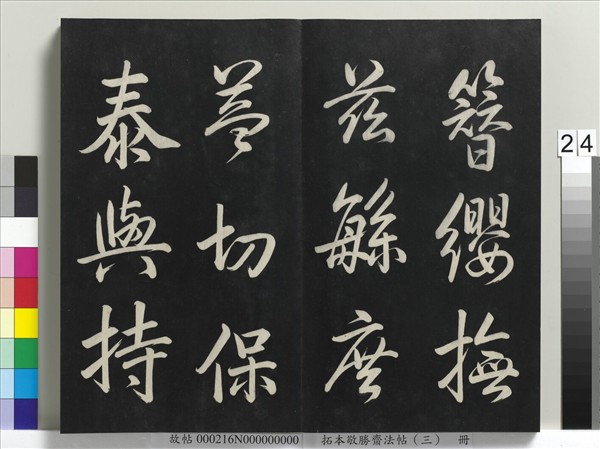 簪纓撫
茲緐庶
益切保
泰與持
24
故帖 000216N000000000 拓本敬勝齋法帖（三） 冊